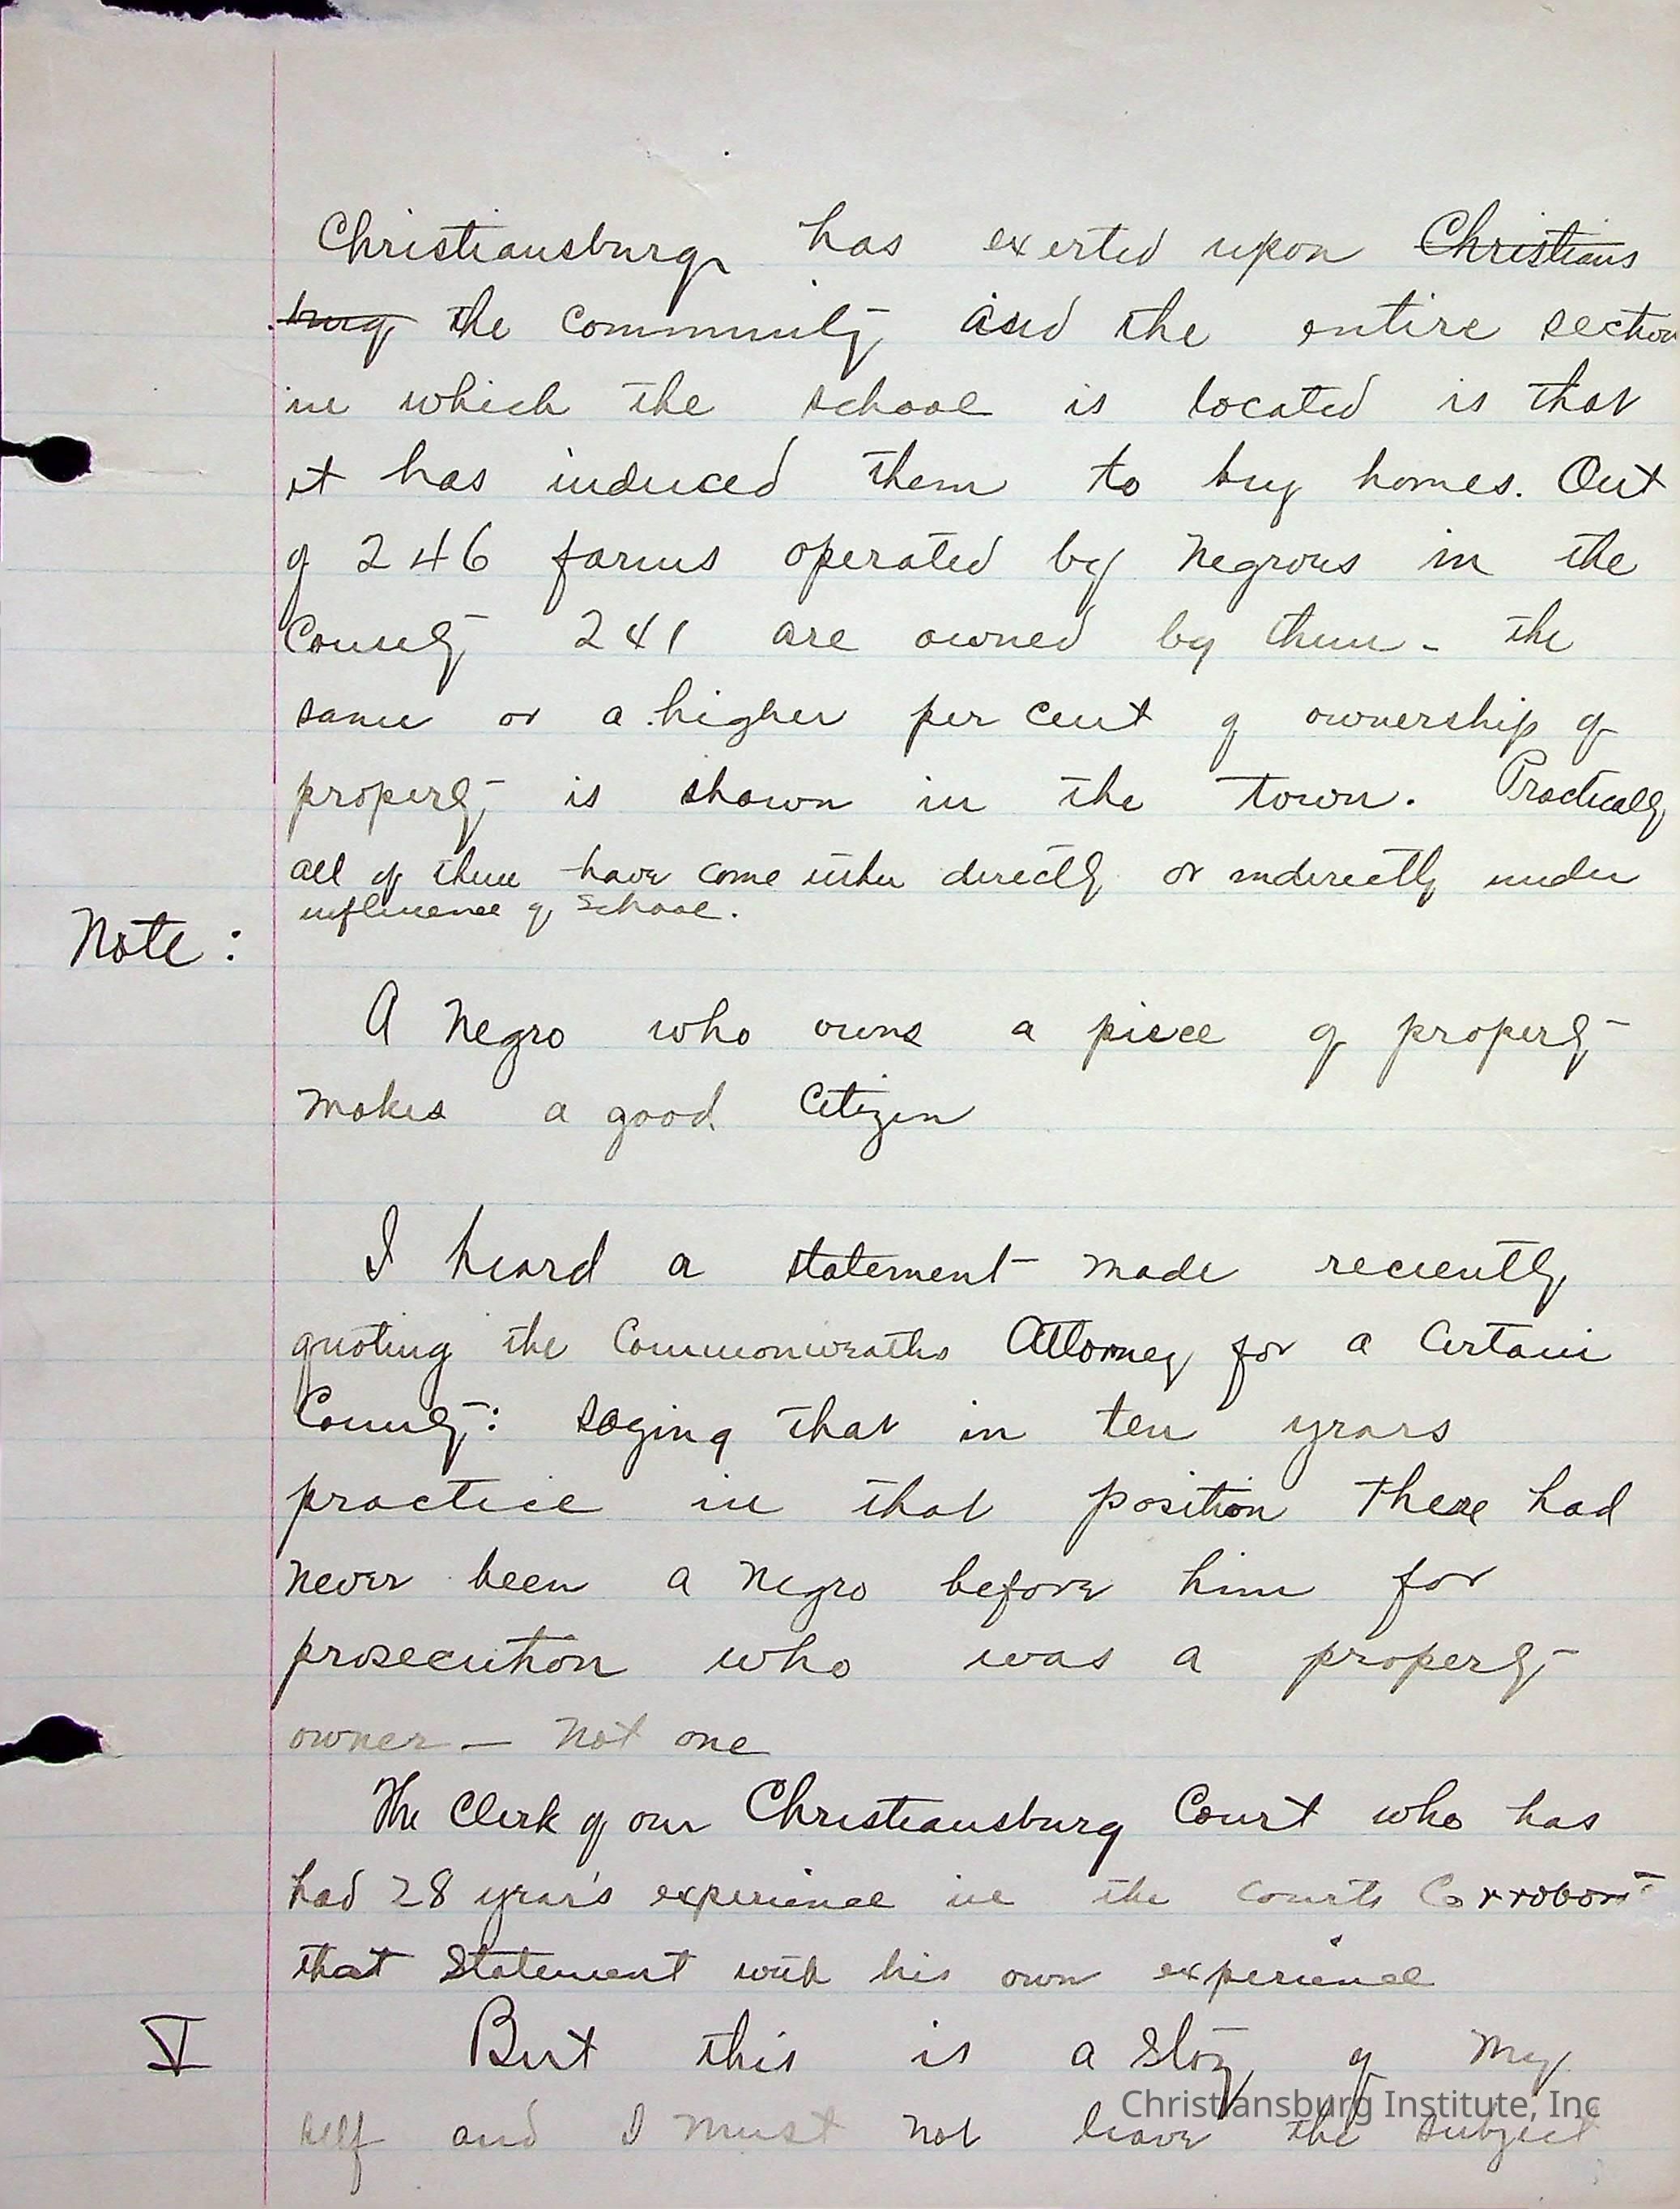 Christiansburg has exerted upon Christians
burg the community and the entire section
in which the school is located is that
it has induced them to buy homes. Out
of 246 farms operated by Negroes in the
County 241 are owned by them - the
same or a higher per cent of ownership of
property is shown in the town. Practically
all of them have come either directly or indirectly under
influence of School.
Note:
A Negro who owns a piece of property
makes a good Citizen
I heard a statement made recently
quoting the Commonwealths Attorney for a Certain
County: saying that in ten years
practice in that position there had
never been a Negro before him for
prosecution who was a property
owner — Not one
The Clerk of our Christiansburg Court who has
had 28 year's experience in the courts Corroborat
that Statement with his own experience
V But this is a Story of My
self and I must not leave the subject
Christiansburg Institute, Inc